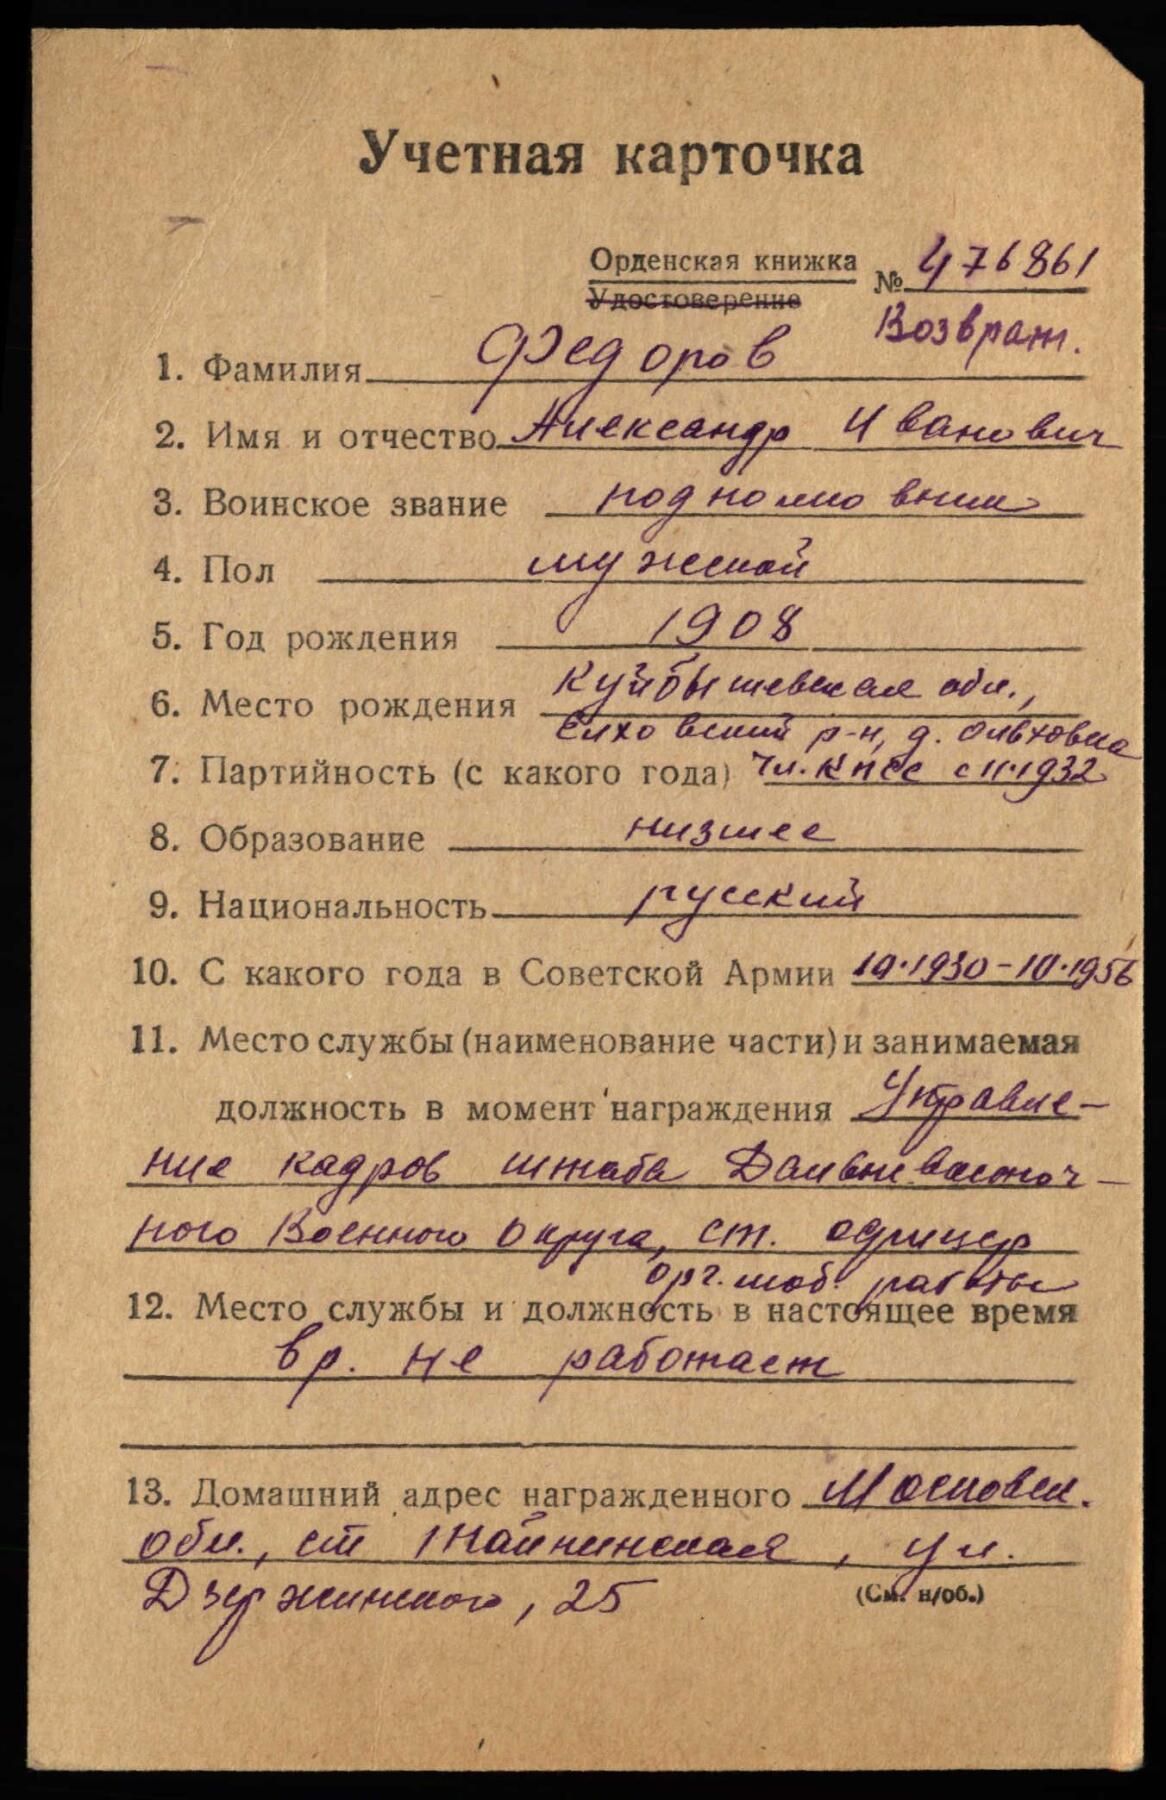 Учетная карточка
Орденская книжка № 476861
Удостоверение
Возврат.
1. Фамилия Федоров
2. Имя и отчество Александр Иванович
3. Воинское звание подполковник
4. Пол мужской
5. Год рождения 1908
6. Место рождения Куйбышевская обл.,
Елховский р-н, д. Ольховка
7. Партийность (с какого года) чл. КПСС с 11.1932
8. Образование низшее
9. Национальность русский
10. С какого года в Советской Армии 10.1930-10.1956
11. Место службы (наименование части) и занимаемая
должность в момент награждения Управле-
ние кадров штаба Дальневосточ-
ного Военного Округа, ст. офицер
орг. моб. работы
12. Место службы и должность в настоящее время
вр. не работает
13. Домашний адрес награжденного Московск.
обл., ст Тайнинская, ул.
Дзержинского, 25
(См. н/об.)